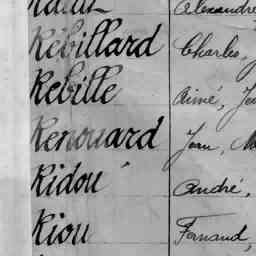 Alexandre
Rébillard Charles,
Rebille Aimé,
Renouard Jean,
Ridou André,
Riou Fernand,